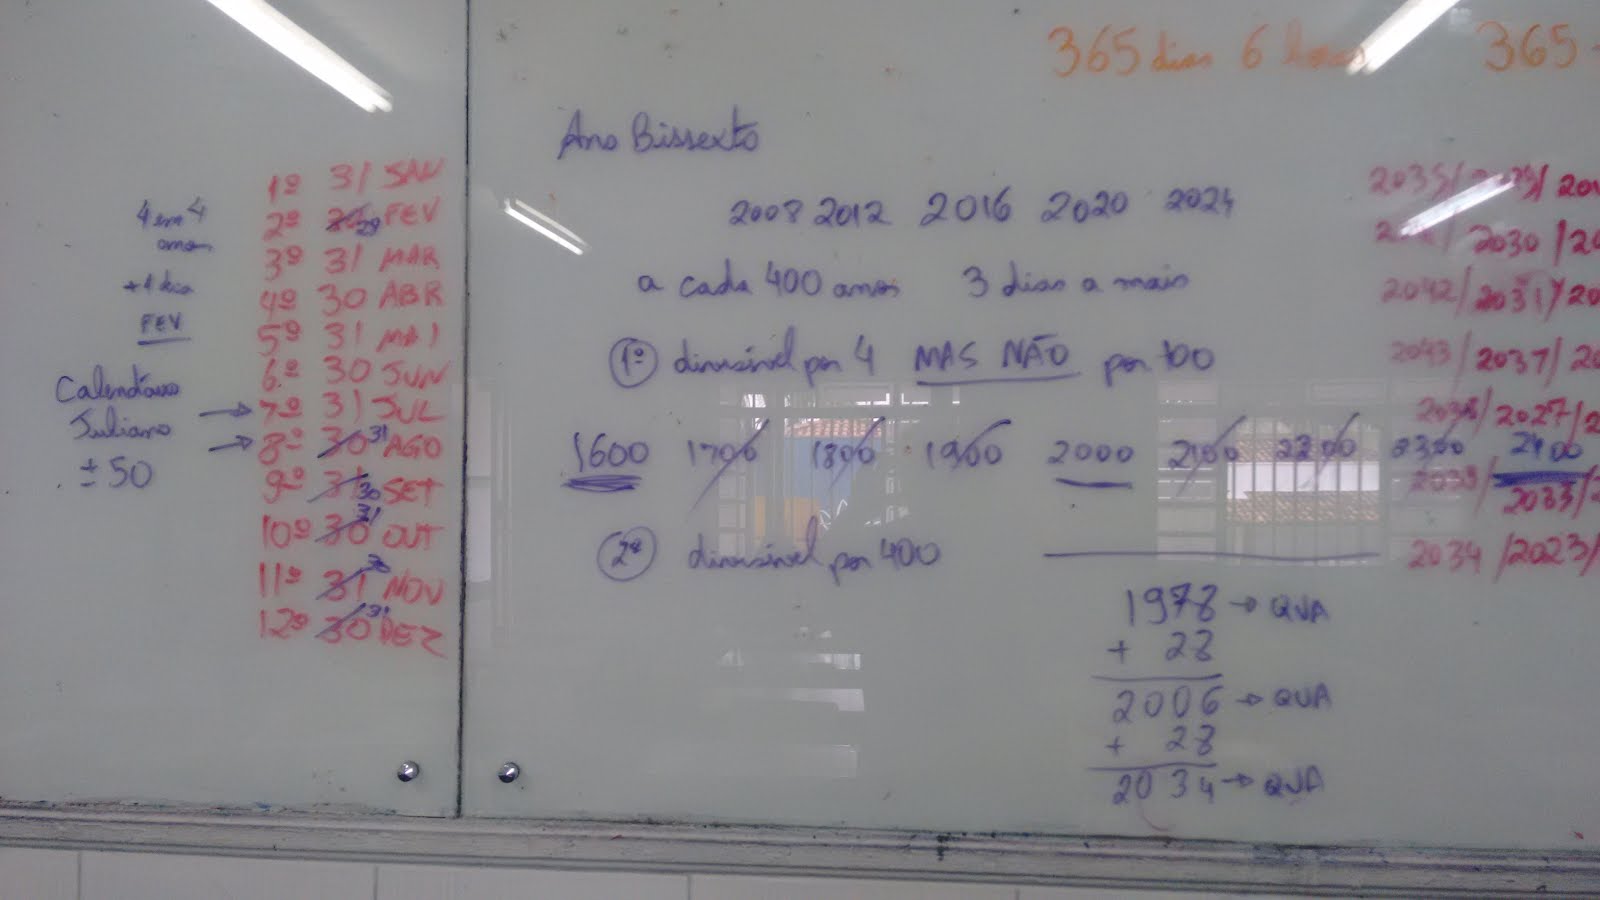 4 em 4
anos
+1 dia
FEV
Calendário
Juliano
± 50
1º 31 JAN
2º 29 FEV
3º 31 MAR
4º 30 ABR
5º 31 MAI
6º 30 JUN
→ 7º 31 JUL
→ 8º 30 31 AGO
9º 31 30 SET
10º 30 31 OUT
11º 31 30 NOV
12º 30 31 DEZ
365 dias 6 horas 365
Ano Bissexto
2008 2012 2016 2020 2024
a cada 400 anos 3 dias a mais
1º divisível por 4 MAS NÃO por 100
1600 1700 1800 1900 2000 2100 2200 2300 2400
2º divisível por 400
1978 → QUA
+ 28
2006 → QUA
+ 28
2034 → QUA
2035/
/2030/20
2042/2031/20
2043/2037/20
/2027/2
2033/
2034/2023/